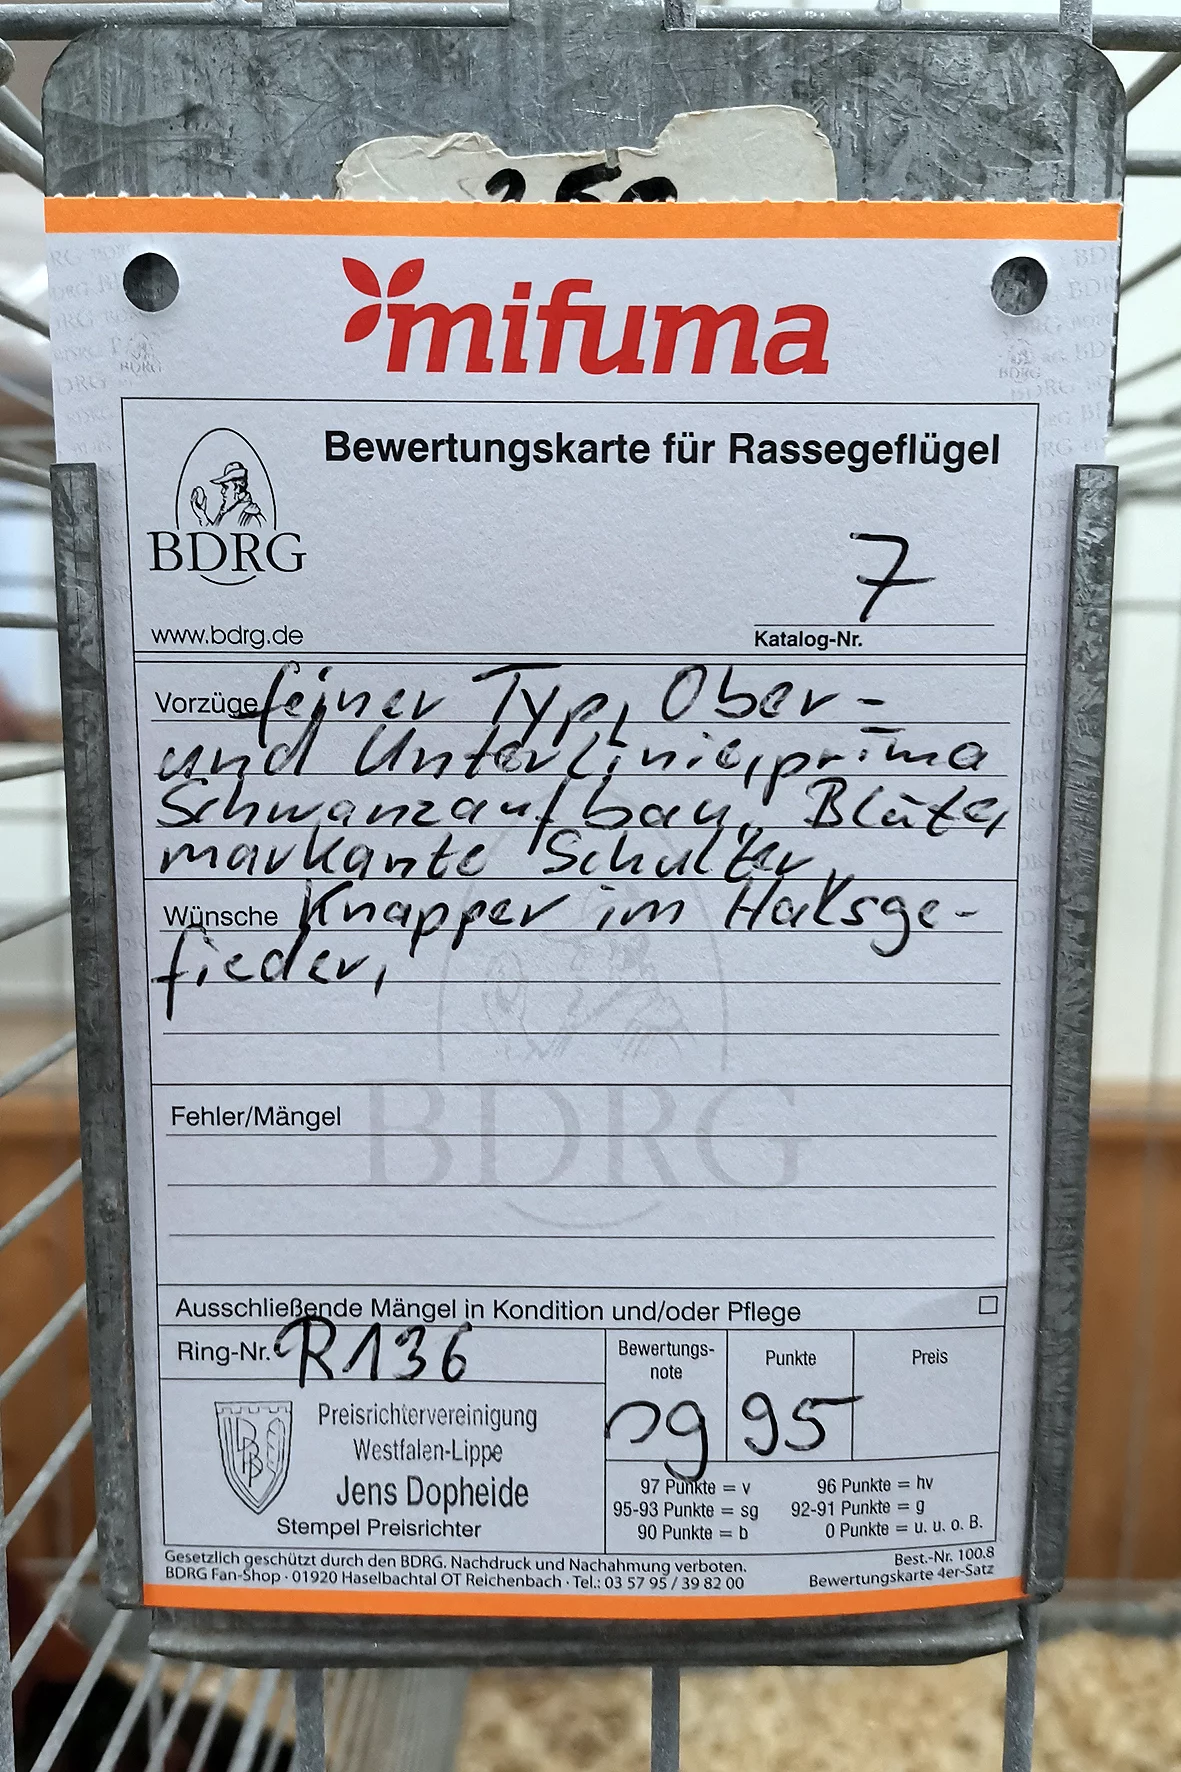 mifuma
Bewertungskarte für Rassegeflügel
BDRG
www.bdrg.de
7
Katalog-Nr.
Vorzüge feiner Typ, Ober-
und Unterlinie, prima
Schwanzaufbau, Blüte,
markante Schulter,
Wünsche Knapper im Halsge-
fieder,
BDRG
Fehler/Mängel
Ausschließende Mängel in Kondition und/oder Pflege
Ring-Nr. R136
Bewertungs-
note
sg
Punkte
95
Preis
Preisrichtervereinigung
Westfalen-Lippe
Jens Dopheide
Stempel Preisrichter
97 Punkte = v 96 Punkte = hv
95-93 Punkte = sg 92-91 Punkte = g
90 Punkte = b 0 Punkte = u. u. o. B.
Gesetzlich geschützt durch den BDRG. Nachdruck und Nachahmung verboten.
BDRG Fan-Shop · 01920 Haselbachtal OT Reichenbach · Tel.: 03 57 95 / 39 82 00
Best.-Nr. 100.8
Bewertungskarte 4er-Satz